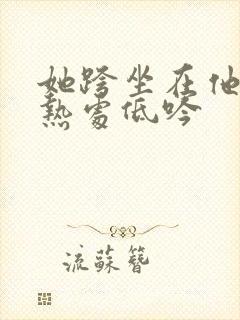 她跨坐在他
熱處低吟
流蘇簪